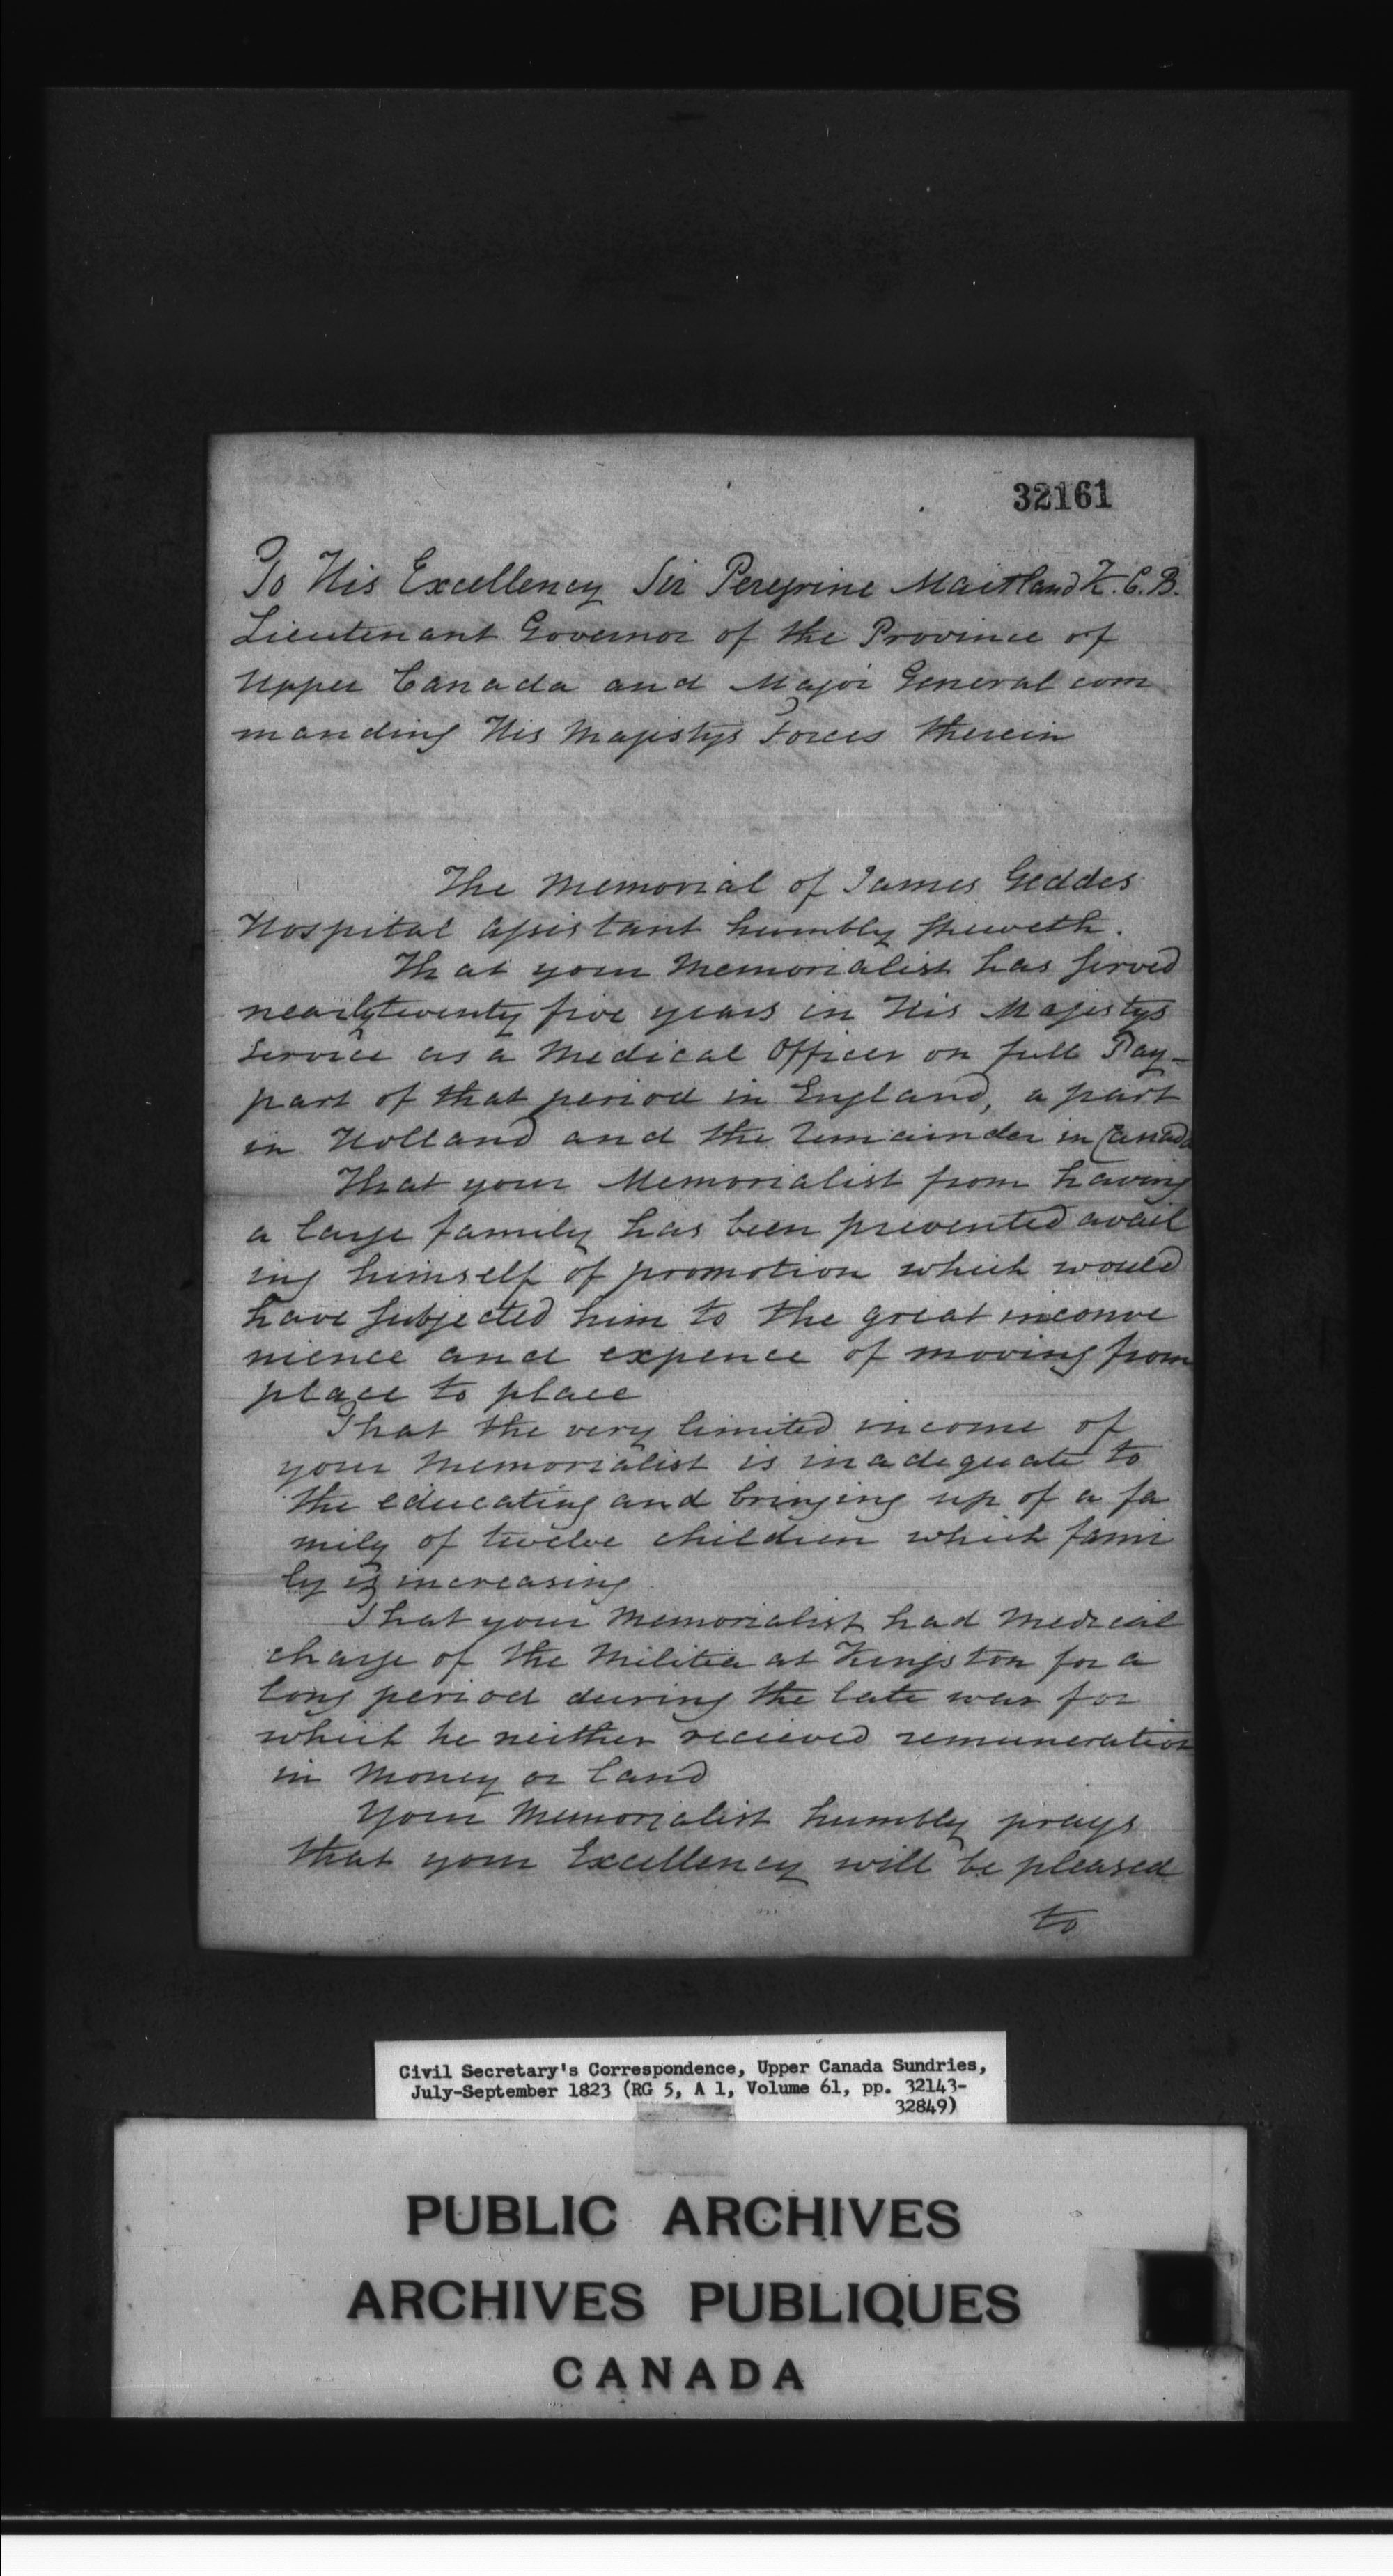 32161
To His Excellency Sir Peregrine Maitland K.C.B.
Lieutenant Governor of the Province of
Upper Canada and Major General com
manding His Majestys Forces therein
The Memorial of James Geddes
Hospital Assistant humbly sheweth.
That your Memorialist has served
nearly twenty five years in His Majestys
Service as a Medical Officer on full Pay-
part of that period in England, a part
in Holland and the remainder in Canada
That your Memorialist from having
a large family has been prevented avail
ing himself of promotion which would
have subjected him to the great inconve
nience and expence of moving from
place to place
That the very limited income of
your Memorialist is inadequate to
the educating and bringing up of a fa
mily of twelve children which fami
ly is increasing
That your Memorialist had Medical
charge of the Militia at Kingston for a
long period during the late war for
which he neither recieved remuneration
in Money or Land
Your Memorialist humbly prays
that your Excellency will be pleased
to
Civil Secretary's Correspondence, Upper Canada Sundries,
July-September 1823 (RG 5, A 1, Volume 61, pp. 32143-
32849)
PUBLIC ARCHIVES
ARCHIVES PUBLIQUES
CANADA